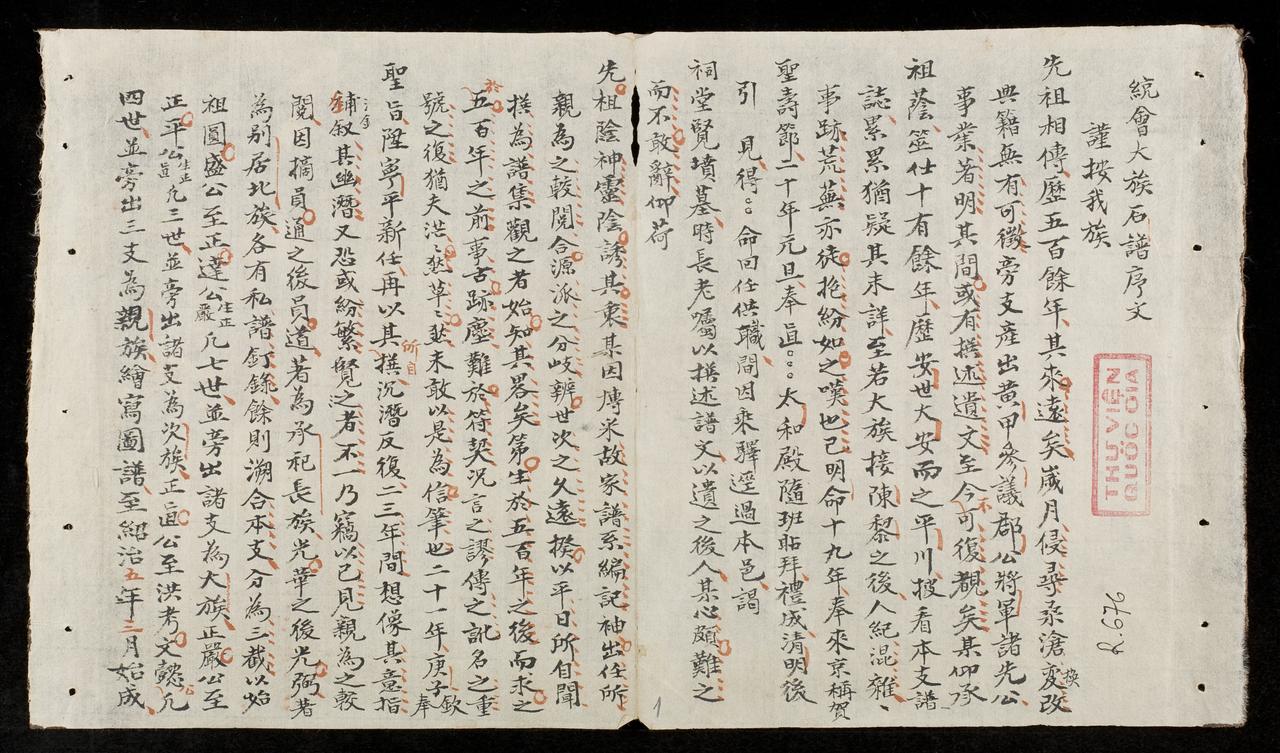 統會大族石譜序文
謹按我族
先祖相傳歷五百餘年其來遠矣歲月侵尋桑滄變改換
典籍無有可徵旁支產出黃甲參議郡公將軍諸先公
事業著明其間或有撰述遺文至今不可復覩矣某仰承
祖蔭筮仕十有餘年歷安世大安而之平川披看本支譜
誌累累猶疑其未詳至若大族接陳黎之後人紀混雜、
事跡荒蕪亦徒抱紛如之嘆也已明命十九年奉來京稱賀
聖壽節二十年元旦奉直太和殿隨班貼拜禮成清明後
引見得命回任供職間因乘驛逕過本邑謁
祠堂賢墳墓時長老囑以撰述譜文以遺之後人某心頗難之
而不敢辭仰荷
先祖陰神靈陰誘其衷某因摶采故家譜系編記袖出任所
親為之較閱合源派之分岐辨世次之久遠揆以平日所自聞
撰為譜集觀之者始知其畧矣第生於五百年之後而求之
於五百年之前事古跡塵難於符契况言之謬傳之訛名之重
號之復猶夫洪〻然草〻然未敢以是為信筆也二十一年庚子欽奉
聖旨陞寧平新任再以其所自撰沉潛反復二三年間想像其意指
補叙其幽潛又恐或紛繁覽之者不一乃竊以己見親為之較
閱因摘員通之後員道著為承祀長族光華之後光弼著
為別居北族各有私譜釘錄餘則溯合本支分為三截以始
祖圓盛公至正達公生正嚴凡七世並旁出諸支為大族正嚴公至
正平公生正直凡三世並旁出諸支為次族正直公至洪考文懿公凡
四世並旁出三支為親族繪寫圖譜至紹治五年三月始成
THƯ VIỆN
QUỐC GIA
R.676
1